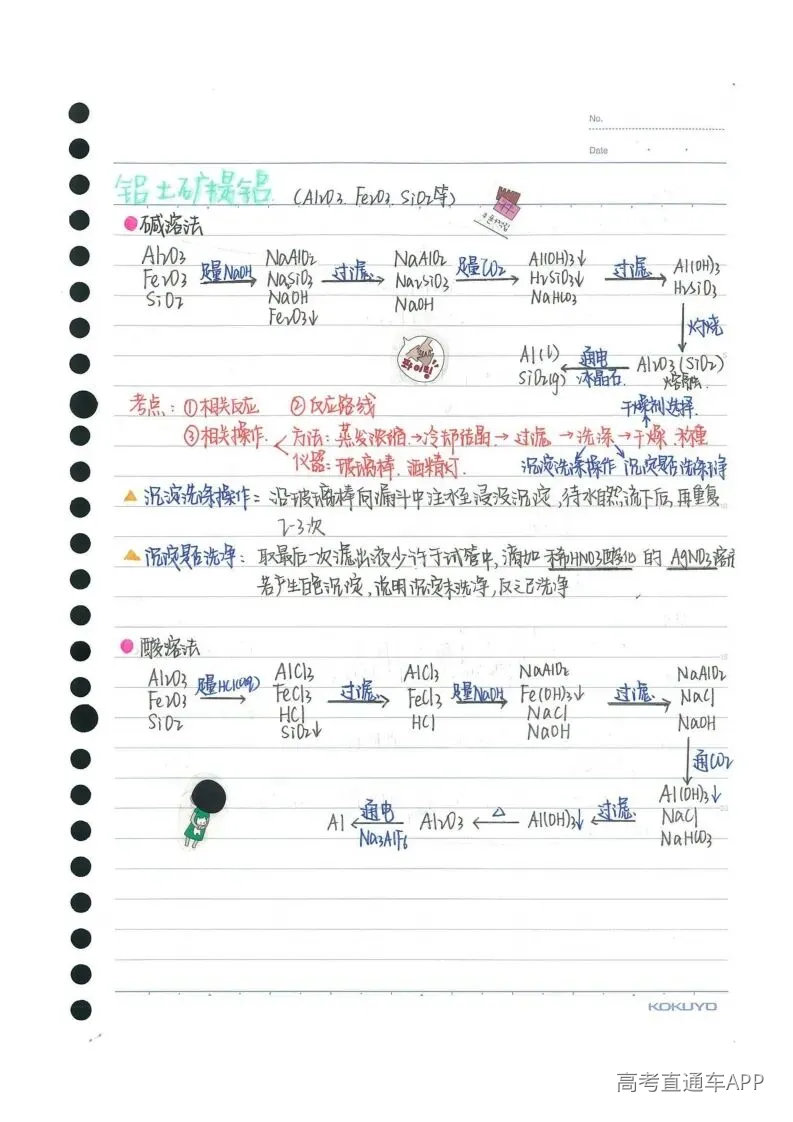 No.
Date
铝土矿提铝 (Al2O3、Fe2O3、SiO2等)
碱溶法
Al2O3 Fe2O3 SiO2 足量NaOH→ NaAlO2 NaSiO3 NaOH Fe2O3↓ 过滤→ NaAlO2 Na2SiO3 NaOH 足量CO2→ Al(OH)3↓ H2SiO3↓ NaHCO3 过滤→ Al(OH)3 H2SiO3
↓灼烧
Al(l) SiO2(g) ←通电 冰晶石 Al2O3(SiO2)
考点: ①相关反应 ②反应路线 干燥剂选择
③相关操作 方法: 蒸发浓缩→冷却结晶→过滤→洗涤→干燥 称重
仪器: 玻璃棒、酒精灯 沉淀洗涤操作 沉淀是否洗涤干净
沉淀洗涤操作: 沿玻璃棒向漏斗中注水至浸没沉淀,待水自然流下后,再重复
2-3次
沉淀是否洗净: 取最后一次滤出液少许于试管中,滴加 稀HNO3酸化 的 AgNO3溶液
若产生白色沉淀,说明沉淀未洗净,反之已洗净
酸溶法
Al2O3 Fe2O3 SiO2 足量HCl(aq)→ AlCl3 FeCl3 HCl SiO2↓ 过滤→ AlCl3 FeCl3 HCl 足量NaOH→ NaAlO2 Fe(OH)3↓ NaCl NaOH 过滤→ NaAlO2 NaCl NaOH
↓通CO2
Al ←通电 Na3AlF6 Al2O3 ←△ Al(OH)3↓ ←过滤 Al(OH)3↓ NaCl NaHCO3
KOKUYO
高考直通车APP